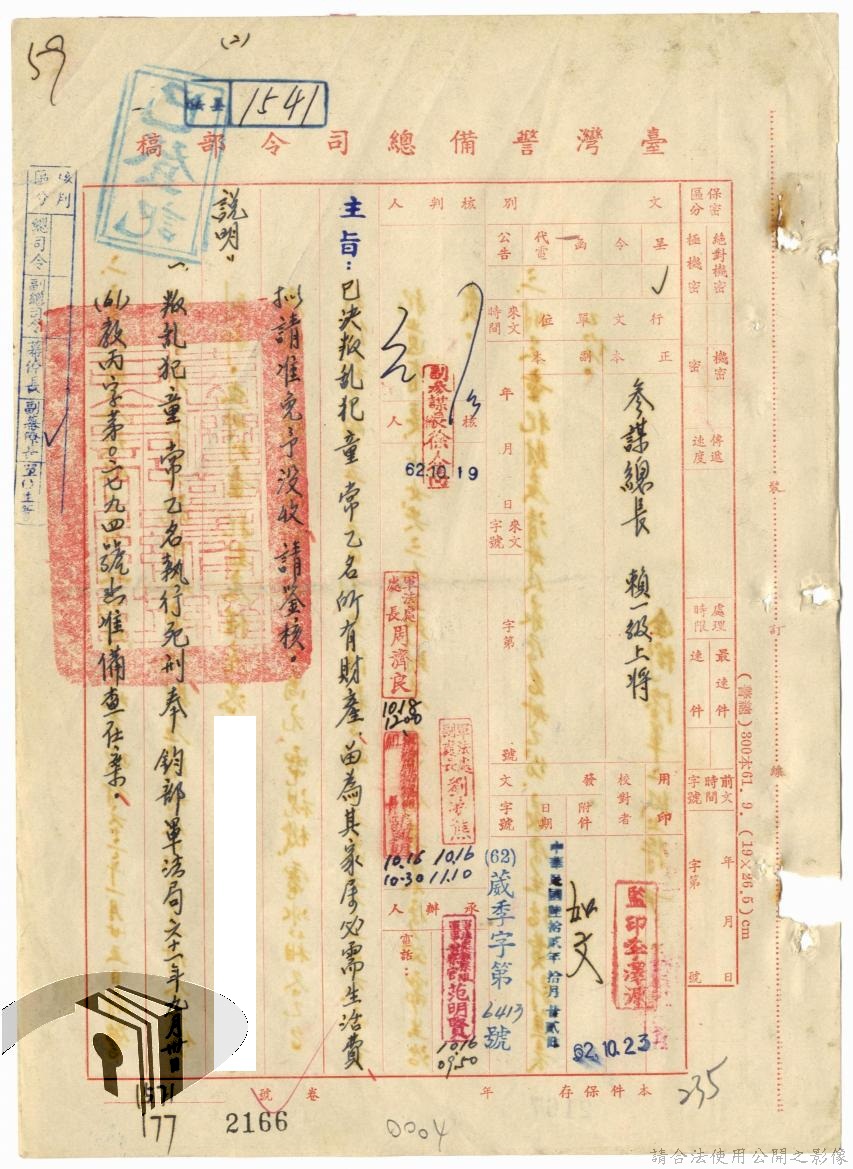 59
(2)
1541
已登記
臺灣警備總司令部稿
保密區分
絕對機密
極機密
機密
密
傳遞速度
處理時限
最速件
速件
前文
時間
字號
年 月 日
字第 號
文別
呈
令
函
代電
公告
行文單位
正本
副本
參謀總長 賴一級上將
來文時間
年 月 日
來文字號
字第 號
用印
校對者
發文
附件
日期
字號
監印
如文
中華民國陸拾貳年拾月廿貳日
62.10.23
(62)葳季字第6413號
核判人
核人
62.10.19
軍法處處長周濟良
10.18
1200
軍法處副處長
10.16
11.10
10.16
10.30
承辦人
范明賢
10.16
09.50
電話：
主旨：已決叛亂犯童 常乙名所有財產，因為其家屬必需生活費
擬請准免予沒收，請鑒核。
說明：
一、叛亂犯童 常乙名執行死刑奉 鈞部軍法局六十一年九月卅日
(61)教丙字第○二七九四號出准備查在案。
核判區分
總司令
副總司令
參謀長
副參謀長
裝
訂
線
300本61.9.(19×26.5)cm
本件保存 年
卷 號
1571
177
2166
0004
235
請合法使用公開之影像